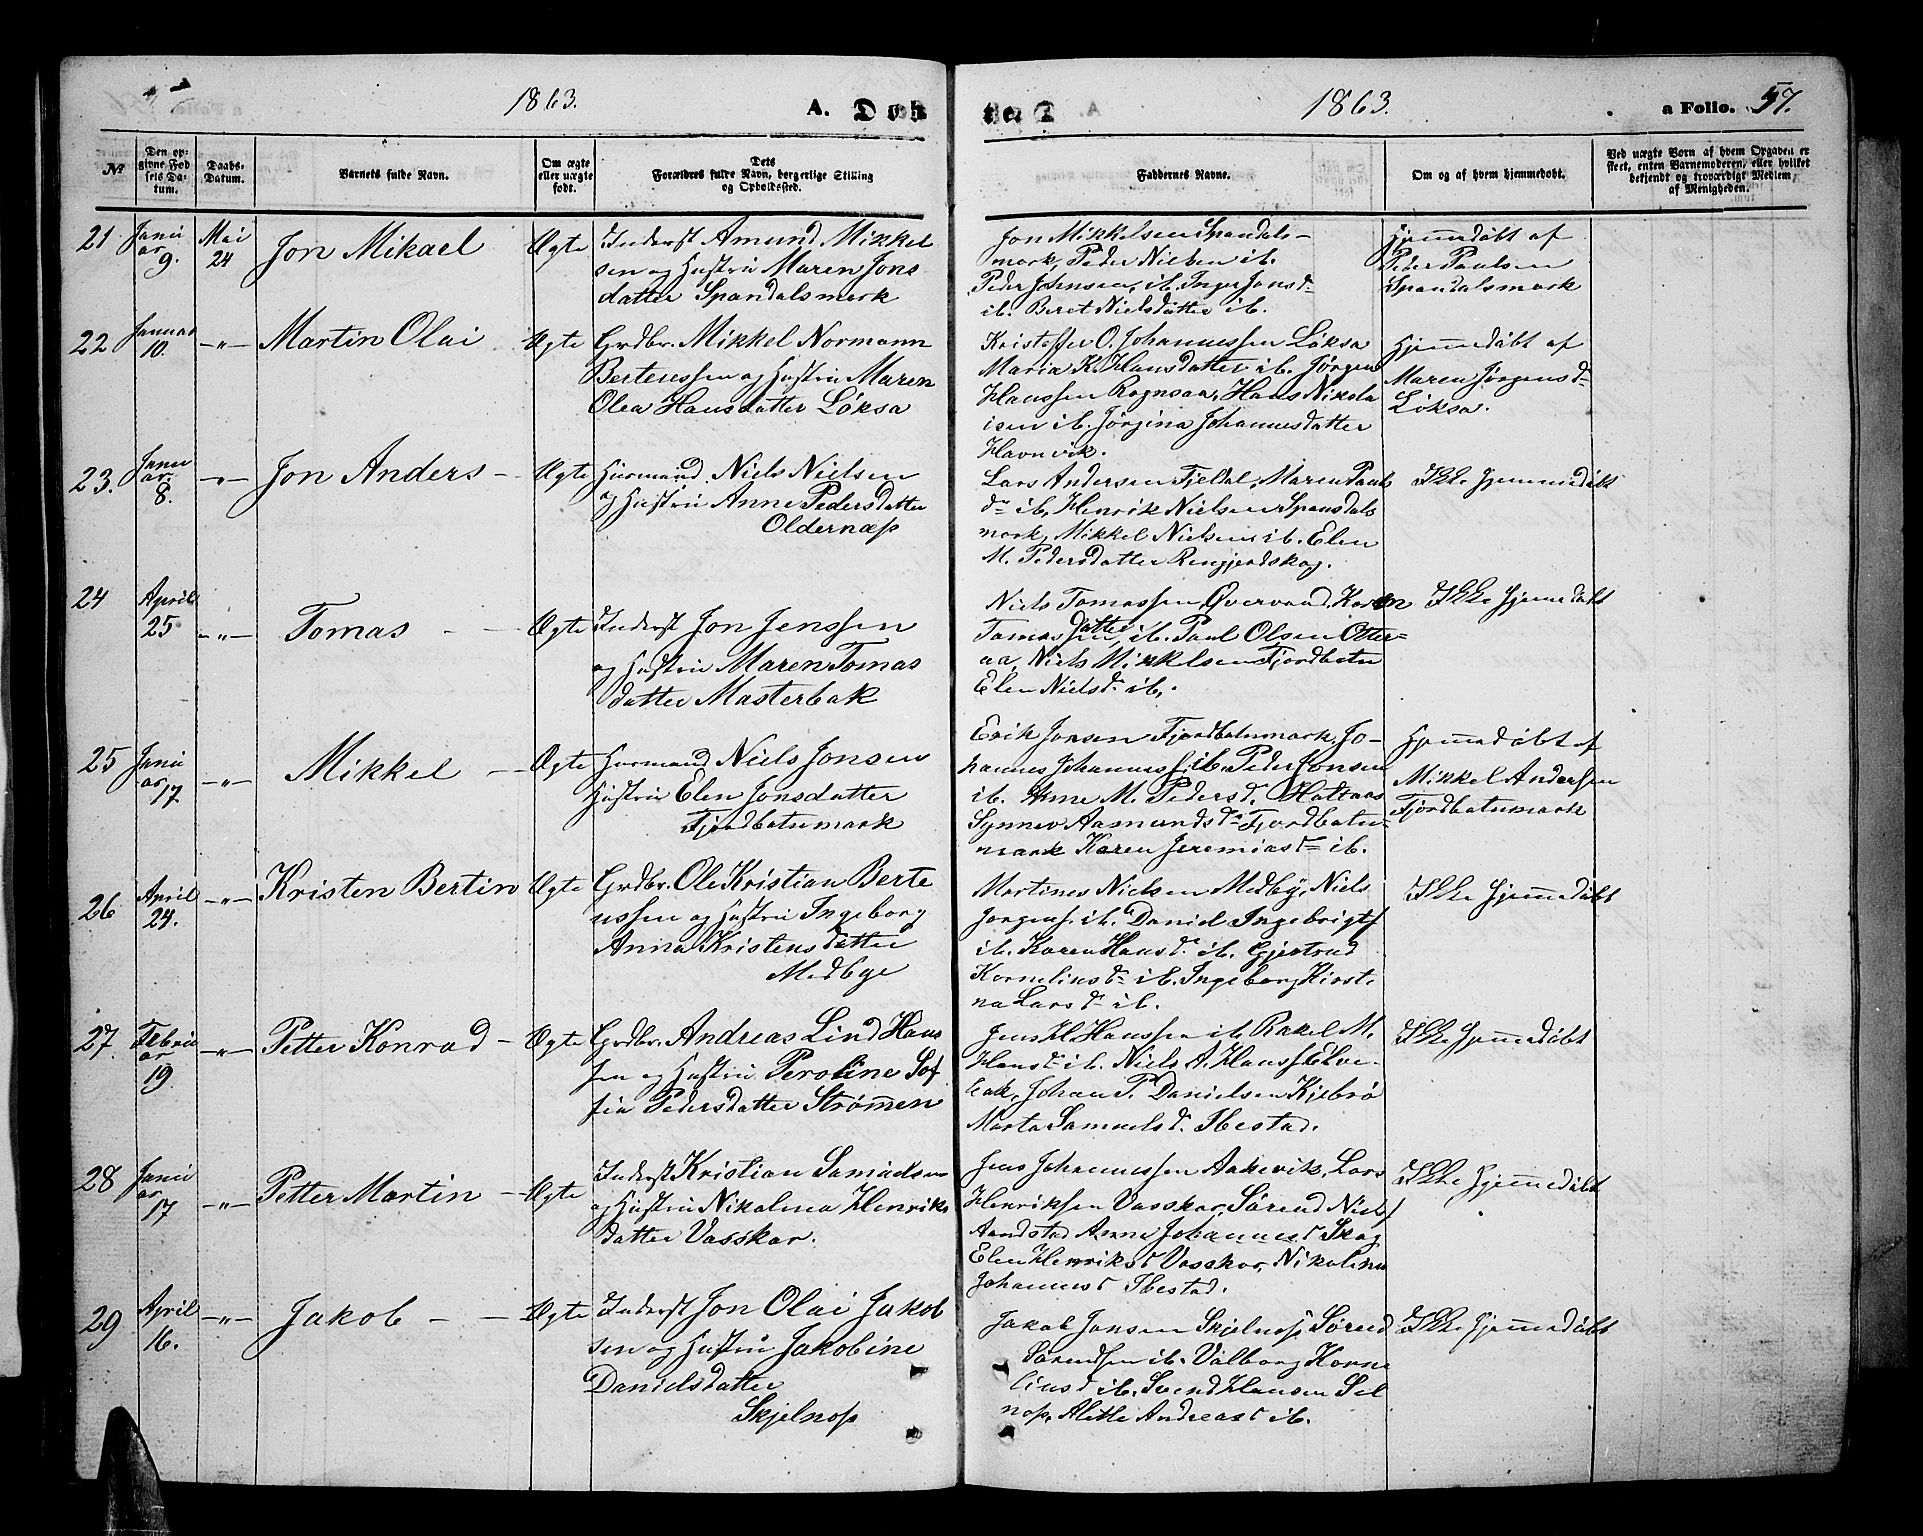 1863. A. Døb
te. 1863. a Folio. 57.
№ Den opgivne Fødsels Datum. Daabs-Datum. Barnets fulde Navn. Om ægte eller uægte født. Dets Forældres fulde Navn, borgerlige Stilling og Opholdssted.
Faddernes Navne. Om og af hvem hjemmedøbt. Ved uægte Børn af hvem Opgaven er skeet, enten Barnemoderen, eller hvilket bekjendt og troværdigt Medlem af Menigheden.
21 Janu
ar
9. Mai
24 Jon Mikael Ægte Inderst Amund Mikkel
sen og Hustru Maren Jons
datter Spandalsmark
Jon Mikkelsen Spandals-
mark, Peder Nielsen ib.
Peder Johnsen, ib. Inger Jonsd-
ib. Beret Nielsdatter ib.
Hjemmedøbt af
Peder Paulsen
Spandalsmark
22 Januar
10. -"- Martin Olai Ægte Grdbr. Mikkel Normann
Berteussen og Hustru Maren
Olea Hansdatter Løksa
Kristoffer O. Johannessen Løksa
Maria K. Hansdatter ib. Jørgen
Hanssen Rognsaa, Hans Nikola
isen ib. Jørgina Johannesdatter
Havnvik.
Hjemmedøbt af
Maren Jørgensd-
Løksa.
23. Janu
ar.
8. -"- Jon Anders - Ægte Husmand Niels Nielsen
og Hustru Anne Pedersdatter
Oldernæss
Lars Andersen Fjeldal, Maren Pauls
d- ib, Henrik Nielsen Spansdals
mark, Mikkel Nielsen ib. Elen
M. Pedersdatter Rengjerdskog.
Ikke Hjemmedøbt
24 April
25 -"- Tomas - Ægte Inderst Jon Jenssen
og Hustru Maren Tomas
datter Masterbak
Niels Tomassen Øvervand, Karen
Tomasdatter, ib. Paul Olsen Otter=
aa, Niels Mikkelsen Fjordbotn
Elen Nielsd. ib.
Ikke Hjemmedøbt
25 Janu
ar
17. -"- Mikkel - Ægte Husmand Niels Jonsen
Hustru Elen Jonsdatter
Fjordbotnmark
Erik Jonsen Fjordbotnmark, Jo-
hannes Johanness. ib. Peder Jonsen
ib. Anne M. Pedersd. Holtaas
Synnev Aamundsd- Fjordbotn=
mark Karen Jeremiasd- ib.
Hjemmedøbt af
Mikkel Andersen
Fjordbotnmark
26 April
24. -"- Kristen Bertin Ægte Grdbr. Ole Kristian Berte
ussen og Hustru Ingeborg
Anna Kristensdatter
Medbye
Martines Nielsen Medby, Niels
Jørgens. ib. Daniel Ingebrigts
ib. Karen Hansd. ib. Gjertrud
Korneliusd- ib. Ingeborg Kirsti
na Larsd- ib.
Ikke Hjemmedøbt
27. Febru
ar
19. -"- Petter Konrad - Ægte Grdbr. Andreas Lind Hans
sen og Hustru Peroline Sof
fia Pedersdatter Strømmen
Jens H. Hanssen ib. Rakel M.
Hansd- ib. Niels A. Hanss Elve-
bak, Johan P. Danielsen Kjebrø
Marta Samuelsd. Ibestad.
Ikke Hjemmedøbt
28 Janu
ar
17 -"- Petter Martin - Ægte Inderst Kristian Samuelsen
og Hustru Nikolina Henriks
datter Vasskar.
Jens Johannessen Aakevik, Lars
Henriksen Vasskar, Sørend Niels
Aandstad Anne Johannesd Skog
Elen Henriksd Vasskar, Nikolina
Johannesd Ibestad.
Ikke Hjemmedøbt
29 April
16. -"- Jakob - - Ægte Inderst Jon Olai Jakob
sen og Hustru Jakobine
Danielsdatter
Skjelnæss
Jakob Jonsen Skjelnæss, Sørend
Sørendsen ib. Valborg Korne
liusd ib. Svend Hansen Sel
næs, Alette Andreasd ib.
Ikke Hjemmedøbt